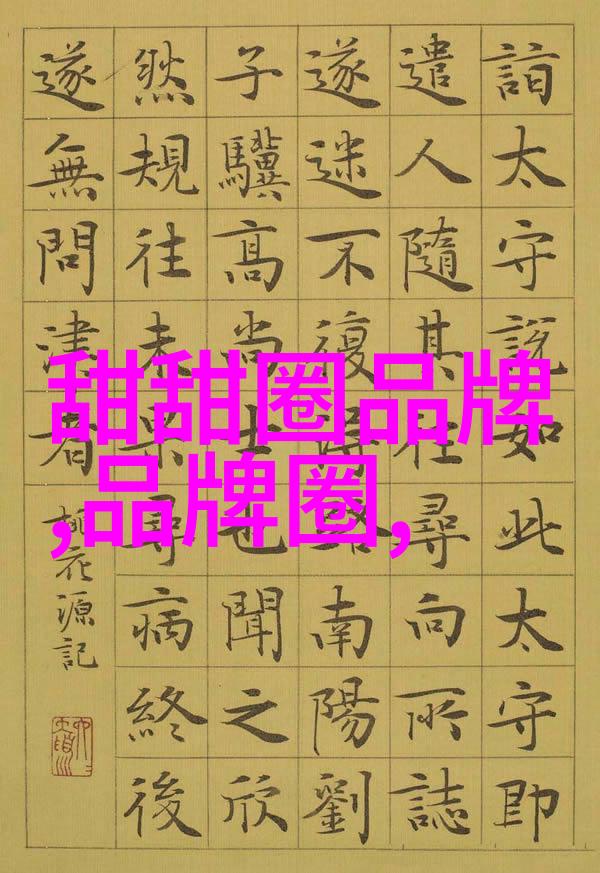 詣太守說如此太守即
遣人隨其往尋向所誌
遂迷不復得路南陽劉
子驥髙尚士也聞之欣
然規往未果尋病終後
遂無問津者
桃花源記
甜甜圈品牌
,品牌圈,